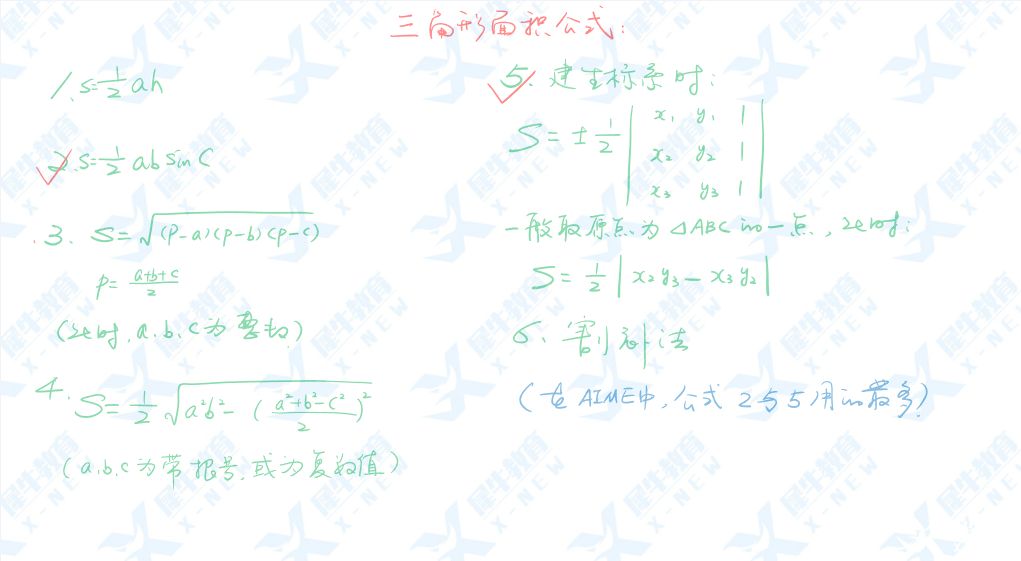 三角形面积公式:
1. S=1/2 ah
2. S=1/2 ab sin C
3. S=√((P-a)(p-b)(p-c))
p=(a+b+c)/2
(这时, a.b.c为整数)
4. S=1/2 √(a²b²-((a²+b²-c²)/2)²)
(a.b.c为带根号, 或为复数值)
5. 建坐标系时:
S=±1/2 | x₁ y₁ 1 |
| x₂ y₂ 1 |
| x₃ y₃ 1 |
一般取原点为△ABC的一点, 这时:
S=1/2 | x₂y₃-x₃y₂ |
6、割补法
(在AIME中, 公式2与5用的最多)
犀牛教育
X-NEW